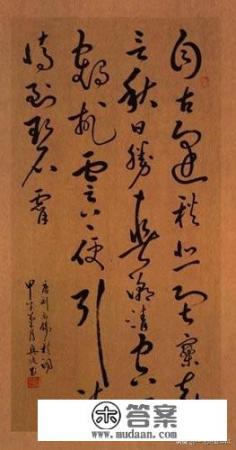 自古逢秋悲寂寥我
言秋日勝春朝晴空一
鶴排雲上便引詩
情到碧霄
唐劉禹錫秋詞
甲午
答案
www.mudaan.com